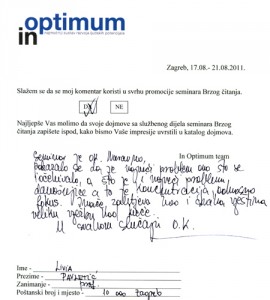 optimum
in
Zagreb, 17.08.- 21.08.2011.
Slažem se da se moj komentar koristi u svrhu promocije seminara Brzog čitanja.
DA NE
Najljepše Vas molimo da svoje dojmove sa službenog dijela seminara Brzog
čitanja zapišete ispod, kako bismo Vaše impresije uvrstili u katalog dojmova.
In Optimum team
Seminar je ok. Naravno,
pokazalo se da je najveći problem ono što se
i očekivalo, a to je i najveći problem
današnjice a to je koncentracija, odnosno
fokus. Znači, zahtjeva kao i svaka vještina
veliku vježbu kod kuće.
U svakom slučaju O.K.
Ime - Livia
Prezime -
Zanimanje - prof.
Poštanski broj i mjesto - 10 000 Zagreb